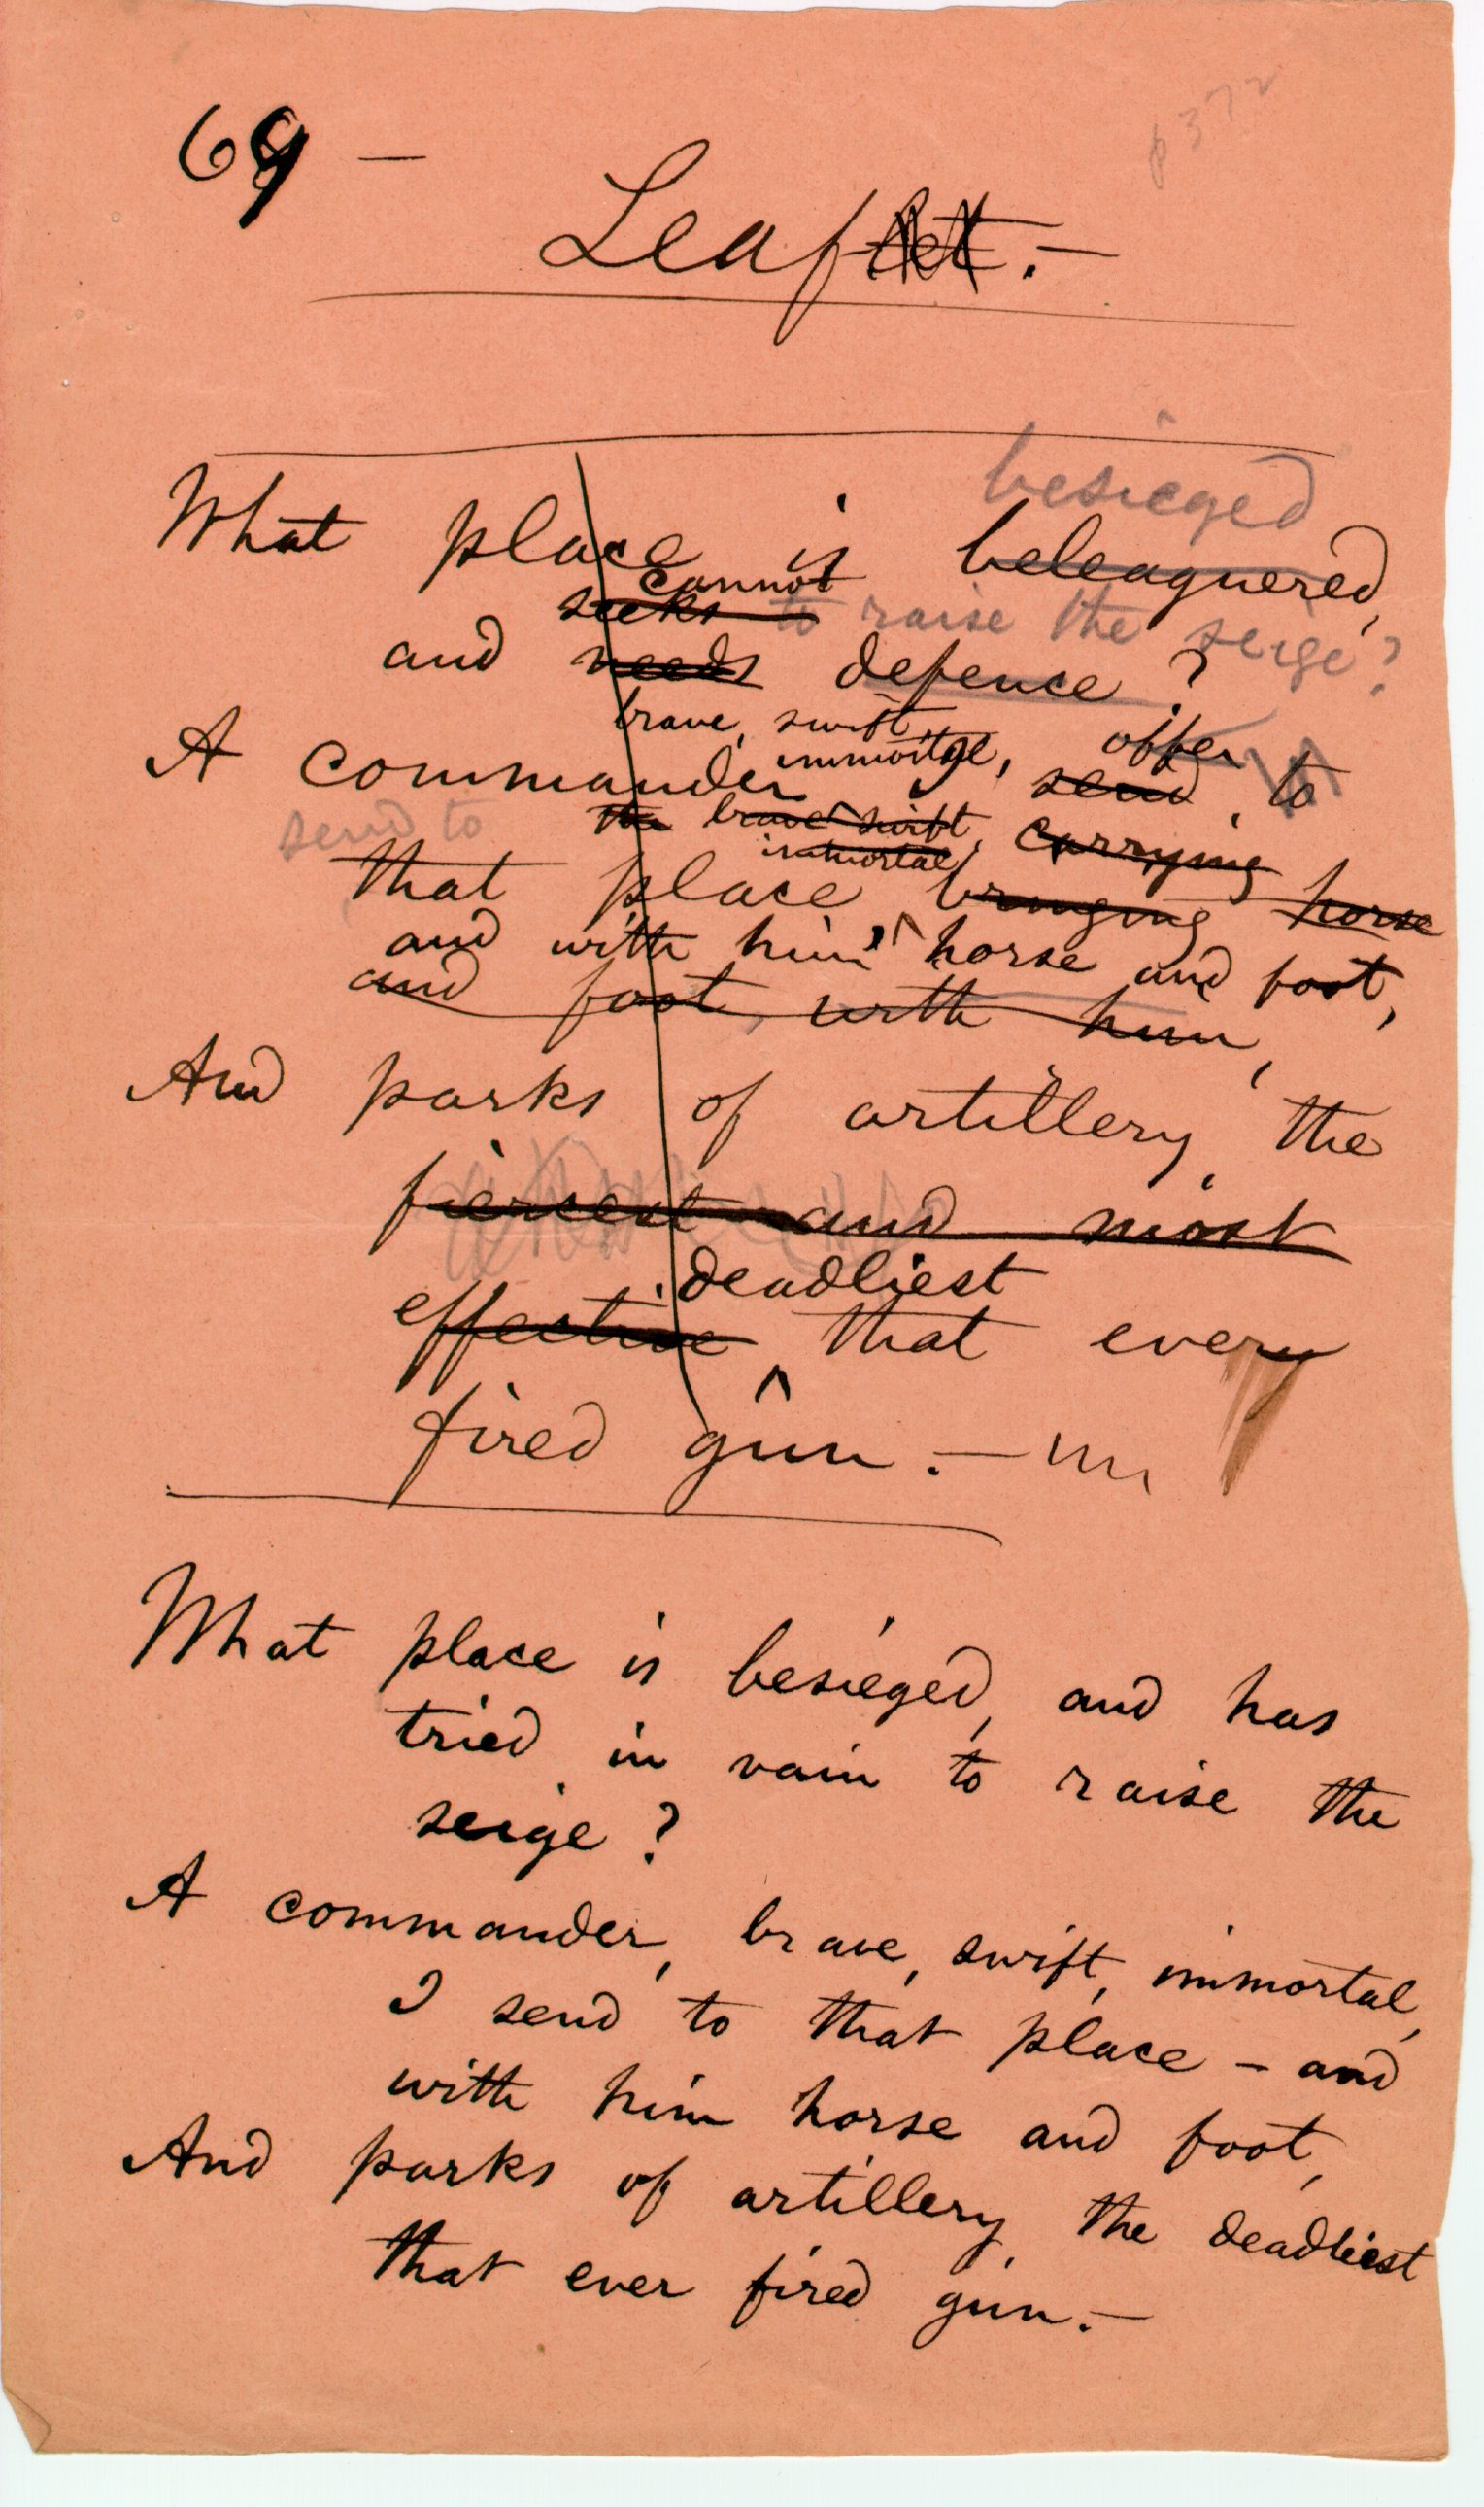 69 —
p 372
Leaflet.—
besieged
What place is beleaguered,
cannot
seeks to raise the seige?
and needs defence?
brave, swift,
immortal, offer
A commander I send to
send to the brave swift, carrying
immortal
that place bringing horse
and with him, horse and foot,
and foot, with him,
And parks of artillery, the
fiercest and most
deadliest
effective that every
fired gun.—
What place is besieged, and has
tried in vain to raise the
seige?
A commander, brave, swift, immortal,
I send to that place – and
with him horse and foot,
And parks of artillery, the deadliest
that ever fired gun.—